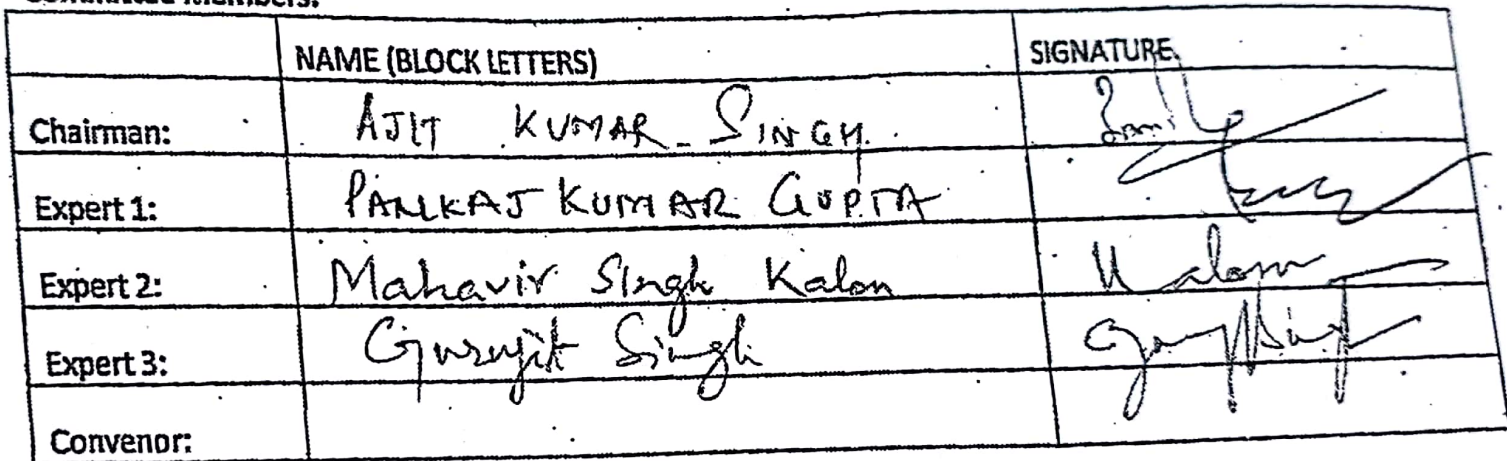 NAME (BLOCK LETTERS) SIGNATURE
Chairman: AJIT KUMAR SINGH
Expert 1: PANKAJ KUMAR GUPTA
Expert 2: Mahavir Singh Kalon
Expert 3: Gurujit Singh
Convenor: